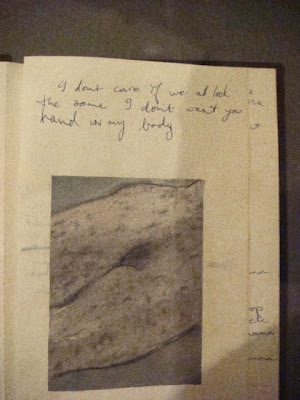 I dont care if we al look
the same I dont want you
hand in my body